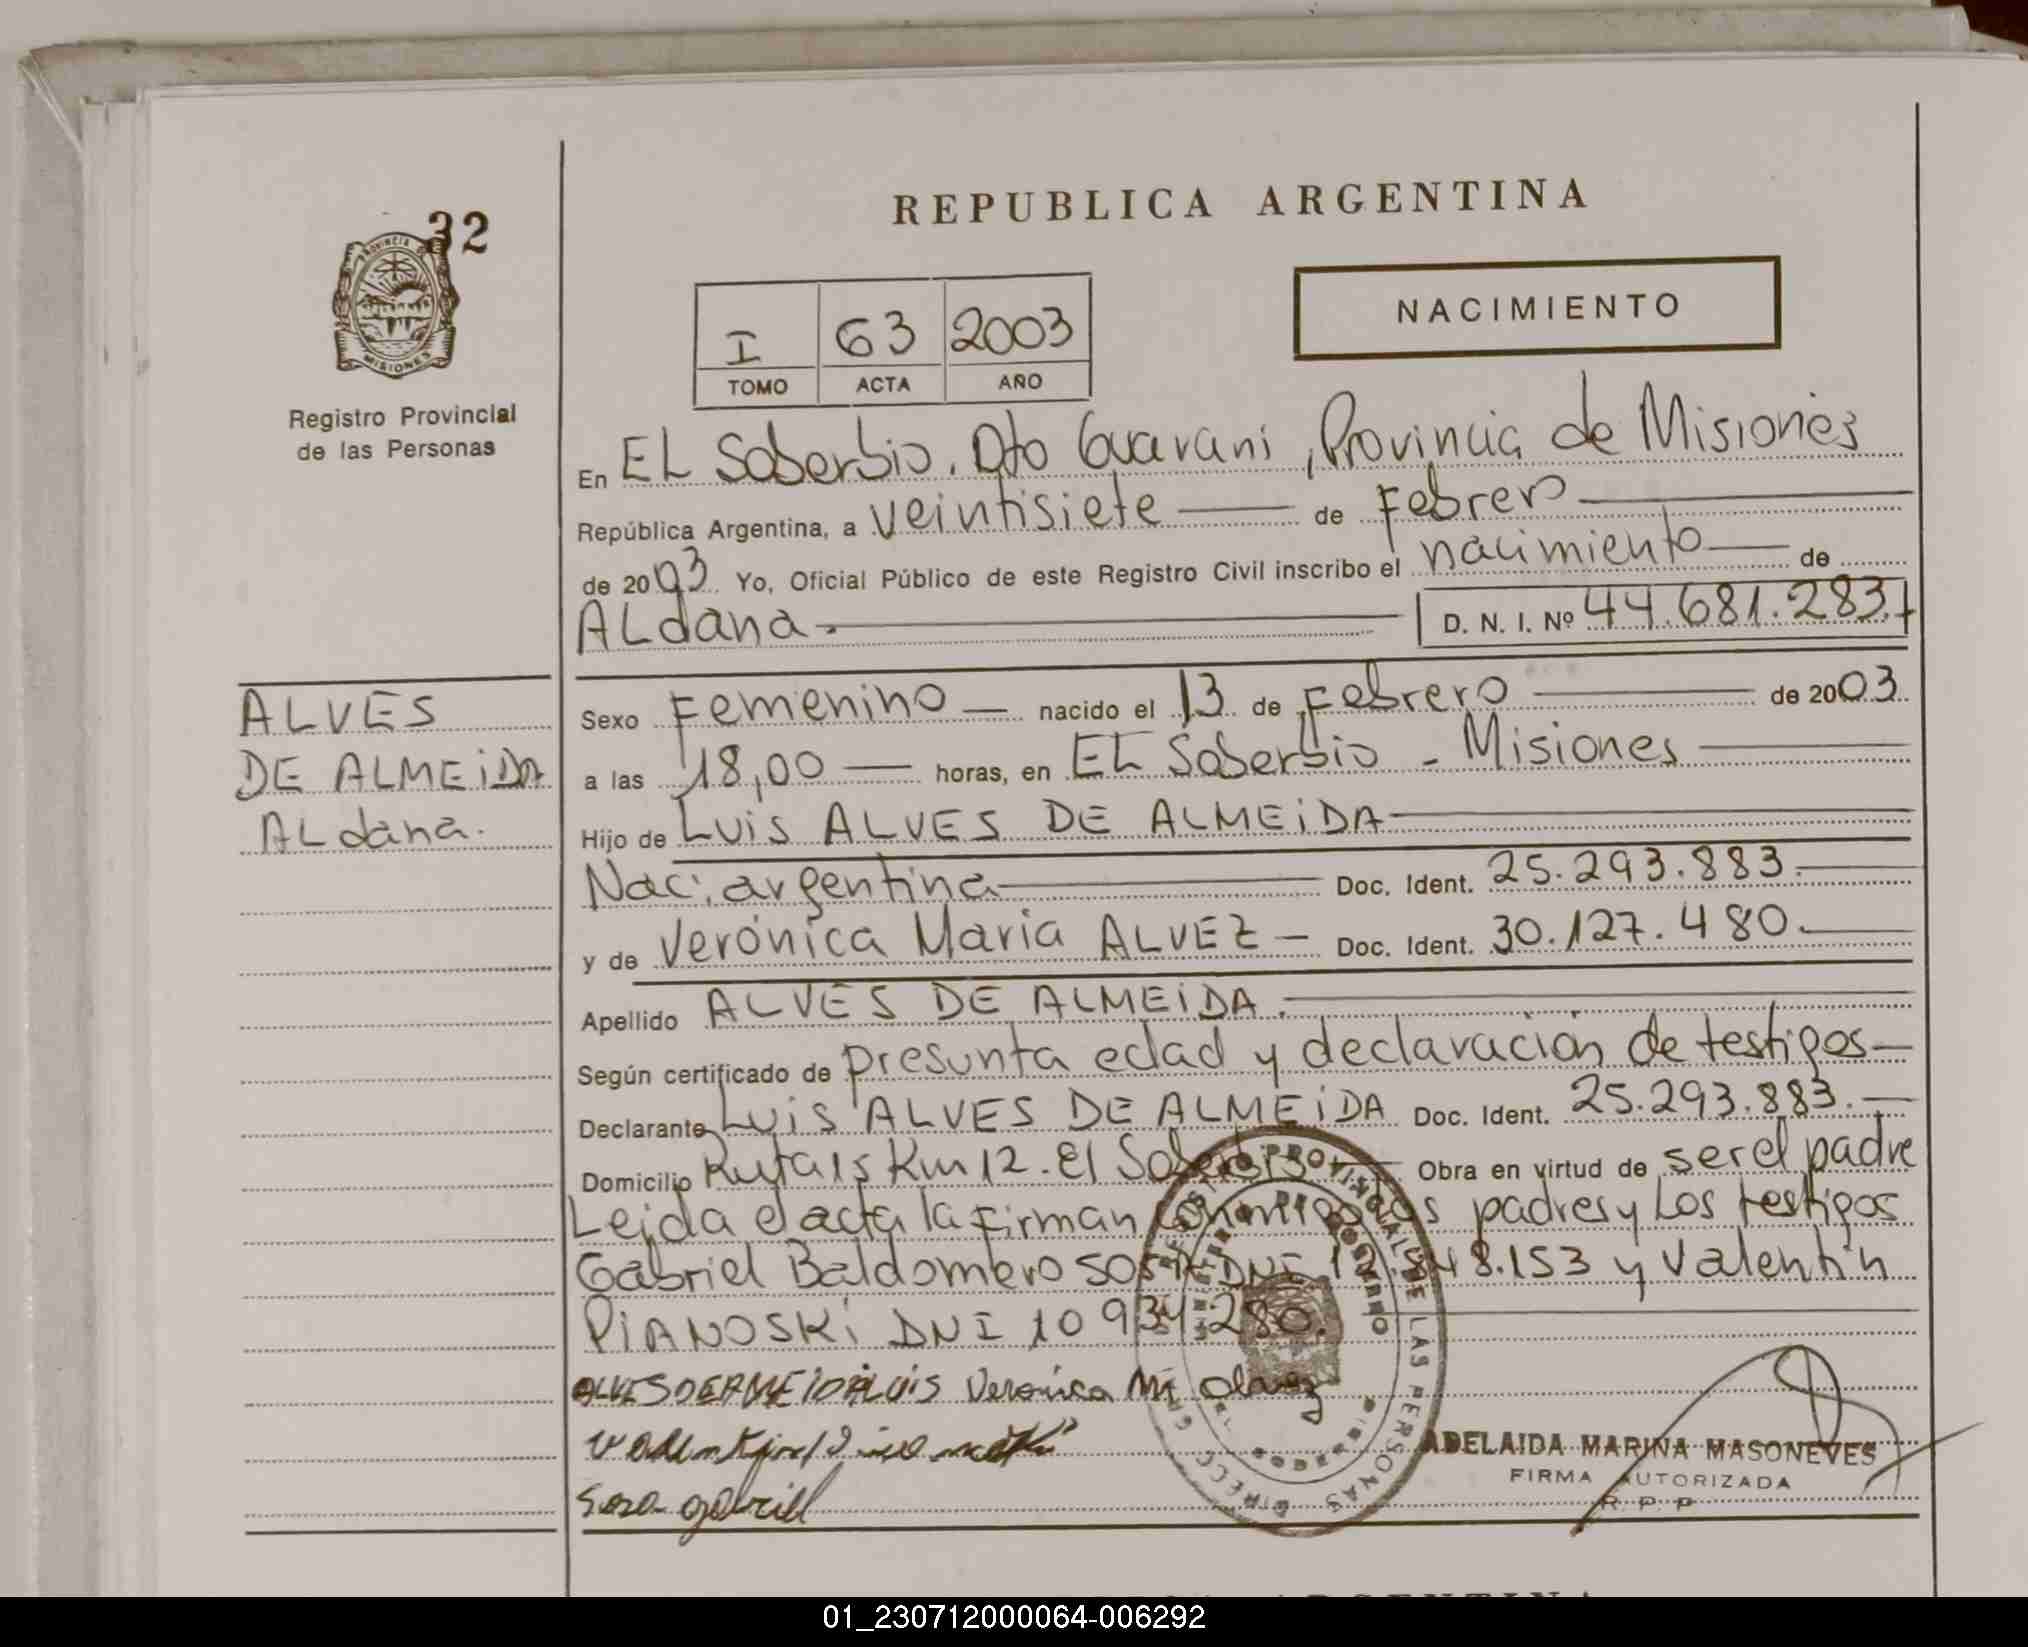 REPUBLICA ARGENTINA
32
PROVINCIA DE
MISIONES
Registro Provincial
de las Personas
NACIMIENTO
I 63 2003
TOMO ACTA AÑO
En EL Soberbio, Dto Guarani, Provincia de Misiones
República Argentina, a veintisiete de Febrero
de 2003 Yo, Oficial Público de este Registro Civil inscribo el nacimiento de
ALdana.
D. N. I. Nº 44.681.283.
ALVES
DE ALMEiDA
ALdana.
Sexo Femenino nacido el 13 de Febrero de 2003
a las 18,00 horas, en EL Soberbio - Misiones
Hijo de LUiS ALVES DE ALMEiDA
Nac: argentina Doc. Ident. 25.293.883.
y de Verónica Maria ALVEZ - Doc. Ident. 30.127.480.
Apellido ALVES DE ALMEiDA.
Según certificado de presunta edad y declaración de testigos
Declarante LUiS ALVES DE ALMEiDA Doc. Ident. 25.293.883.
Domicilio Ruta 15 Km 12. El Soberbio Obra en virtud de ser el padre
Leida el acta la firman conmigo los padres y Los testigos
Gabriel Baldomero SOSA DNI 48.153 y Valentin
PiANOSKi DNI 10 934.280.
ALVES DE ALMEIDA LUIS Verónica M alvez
Sosa gabriel
ADELAIDA MARINA MASONEVES
FIRMA AUTORIZADA
R. P. P.
REGISTRO PROVINCIAL DE LAS PERSONAS
01_230712000064-006292